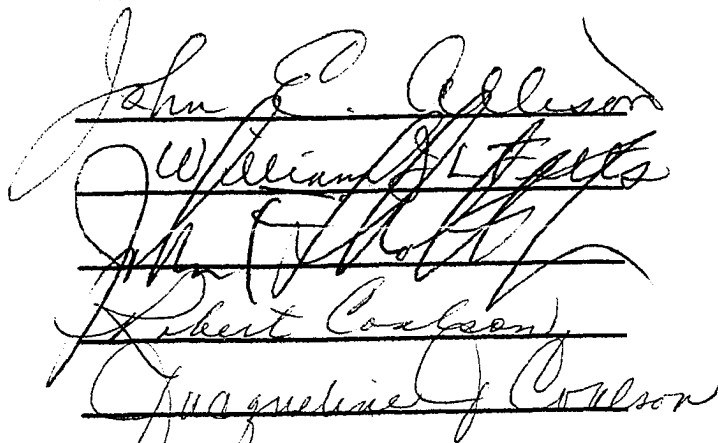 John E. Allison
William J L Felts
John
Robert Coulson
Jacqueline J Coulson